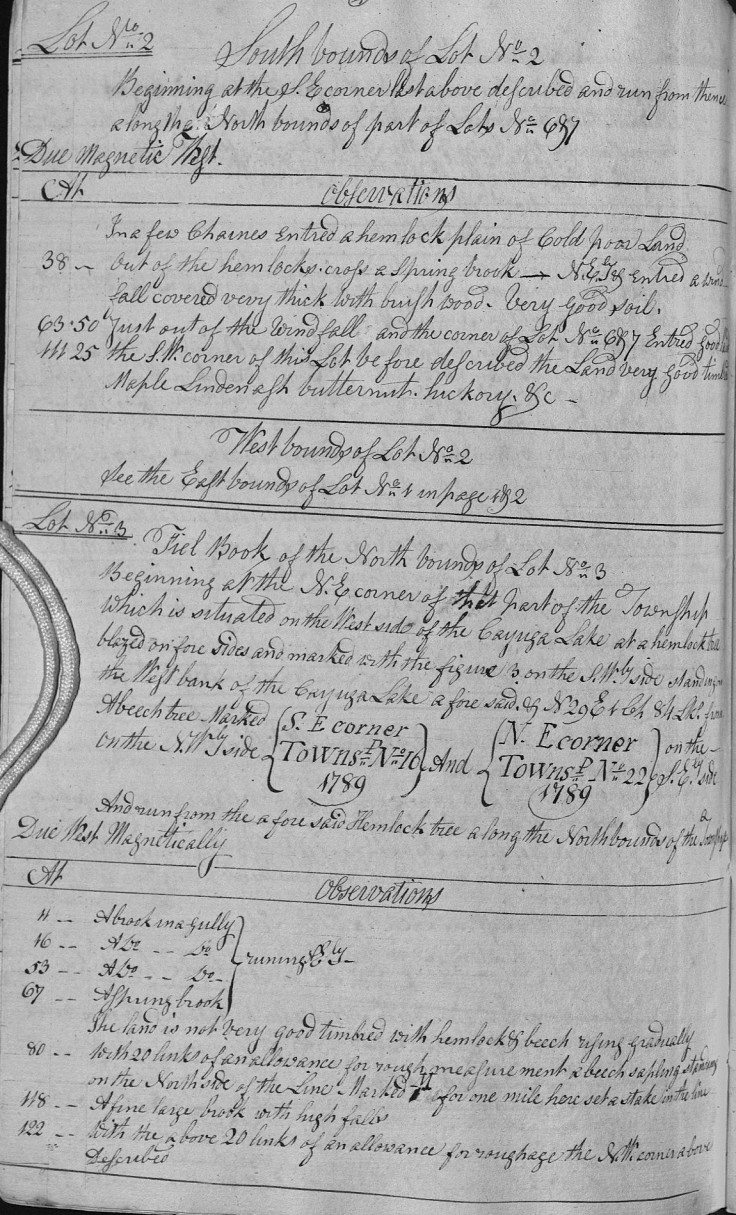 Lot No. 2
South bounds of Lot No. 2
Beginning at the S. E corner last above described and run from thence
along the North bounds of part of Lots No. 6 & 7
Due Magnetic West.
At Observations
In a few Chaines Entred a hemlock plain of Cold poor Land
38 -- Out of the hemlocks cross a Spring brook → N. E.ly & Entred a wind
fall covered very thick with bush wood. Very Good soil.
63.50 Just out of the Windfall and the corner of Lot No. 6 & 7 Entred good
111 25 the S. W. corner of this Lot before described the Land very good timb
Maple Linden ash butternut. hickory. &c -
West bounds of Lot No. 2
see the East bounds of Lot No. 1 in page 1 & 2
Lot No. 3.
Fiel Book of the North bounds of Lot No. 3
Beginning at the N. E corner of that part of the Township
which is situated on the West side of the Cayuga Lake at a hemlock tree
blazed on fore sides and marked with the figure 3 on the S. W.ly side standing on
the West bank of the Cayuga Lake a fore said. & N. 29 E 1 Ch. 84 Lks. from
A beech tree Marked
on the N. W.ly side { S. E corner Towns.p No. 16 1789 } And { N. E corner Towns.p No. 22 1789 } on the - S. E.ly side
And run from the a fore said Hemlock tree along the North bounds of the a
Due West Magnetically
At Observations
11 -- A brook in a gully
16 -- A Do -- Do
53 -- A Do -- Do -
67 -- A Sprung brook
} runing E.ly -
The land is not Very good timbred with hemlock & beech rising gradually
80 -- With 20 links of an allowance for rough measurement a beech sapling standing
on the North side of the Line Marked for one mile here set a stake in the line
118 -- A fine large brook with high falls
122 -- With the above 20 links of an allowance for roughage the N. W. corner above
Described